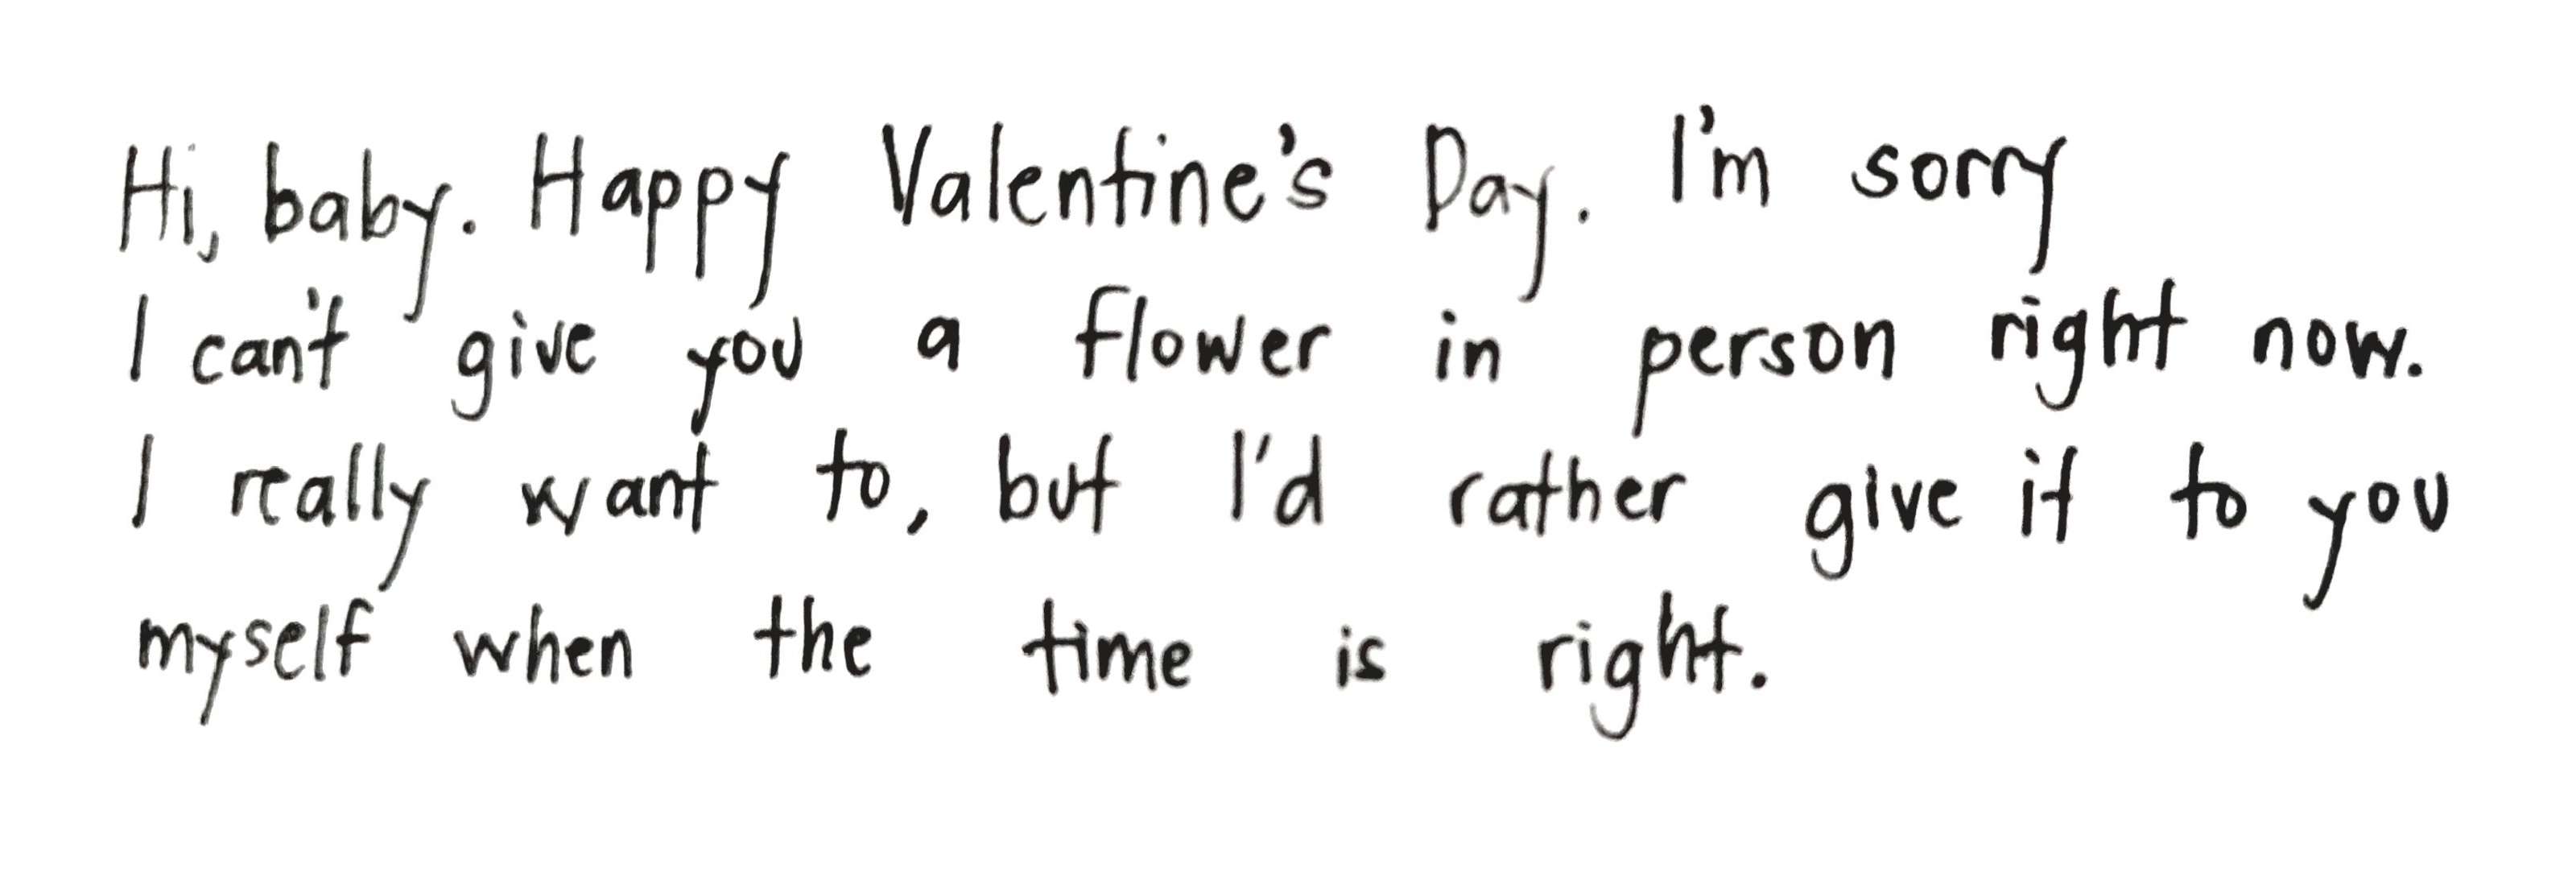 Hi, baby. Happy Valentine's Day. I'm sorry
I can't give you a flower in person right now.
I really want to, but I'd rather give it to you
myself when the time is right.